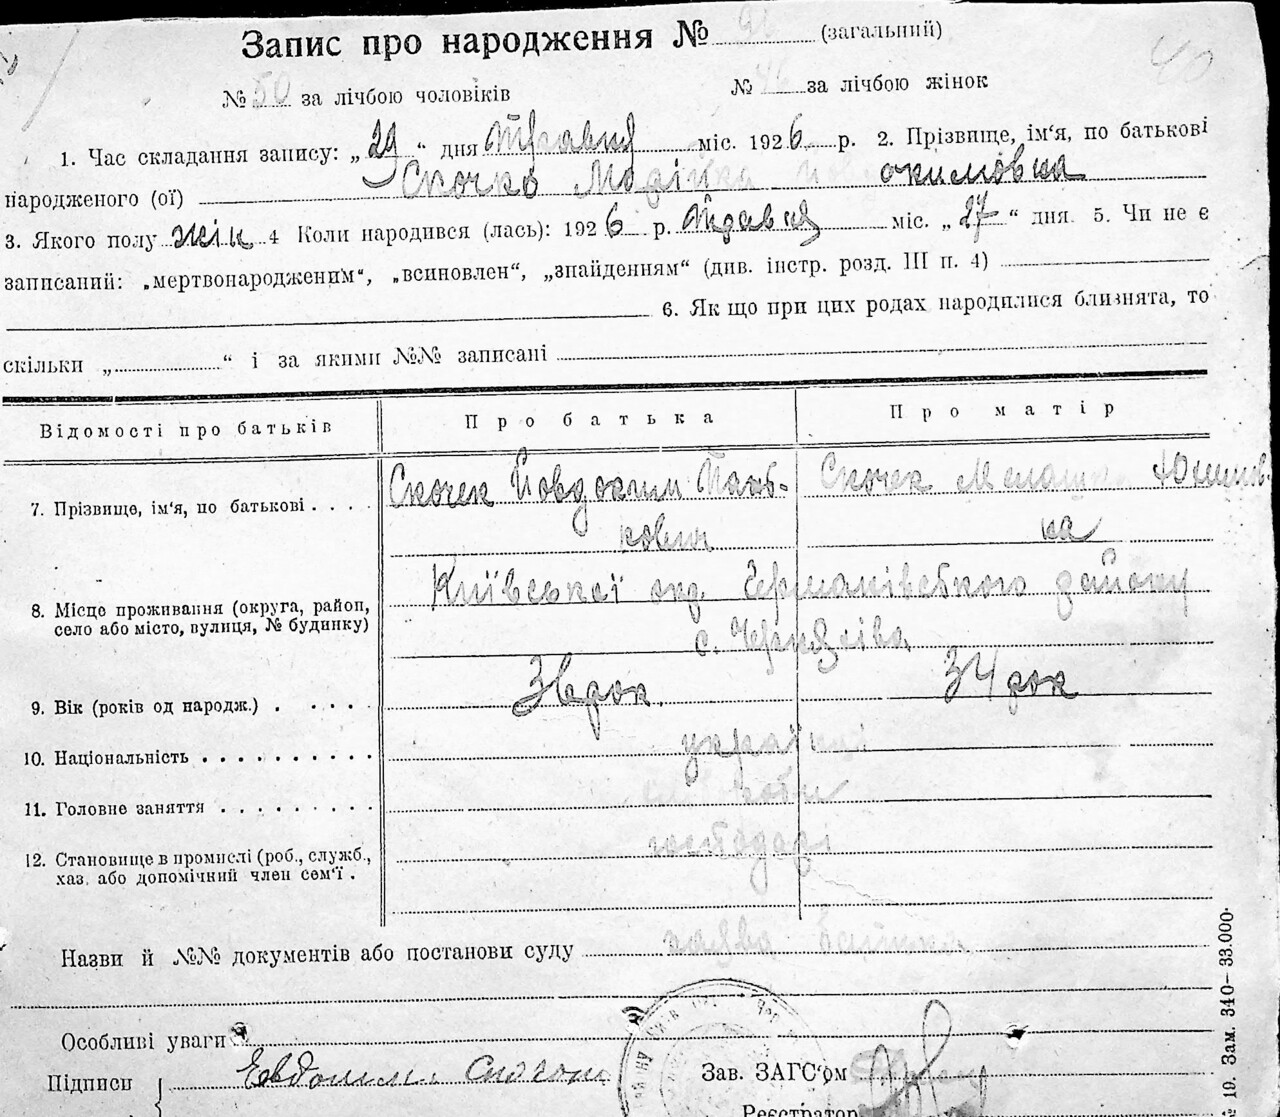 Запис про народження № 96 (загальний)
№ 50 за лічбою чоловіків № 46 за лічбою жінок
40
1. Час складання запису: „29“ дня Травня міс. 1926 р. 2. Прізвище, ім'я, по батькові
народженого (ої) Скочко окимовна
3. Якого полу жін 4 Коли народився (лась): 1926 р. Травня міс. „27“ дня. 5. Чи не є
записаний: „мертвонародженим“, „всиновлен“, „знайденням“ (див. інстр. розд. III п. 4)
6. Як що при цих родах народилися близнята, то
скільки „ “ і за якими №№ записані
Відомості про батьків Про батька Про матір
7. Прізвище, ім'я, по батькові Скочек Йовдоким
8. Місце проживання (округа, район, село або місто, вулиця, № будинку) Київської окр. Германівського району
с.
9. Вік (років од народж.) 36 рок. 34 рок
10. Національність україн
11. Головне заняття
12. Становище в промислі (роб., служб., хаз. або допомічний член сем'ї. господарі
Назви й №№ документів або постанови суду заява батька
Особливі уваги
Підписи Евдоким
Зав. ЗАГС'ом
Реєстратор
№ 19. Зам. 340—33.000.